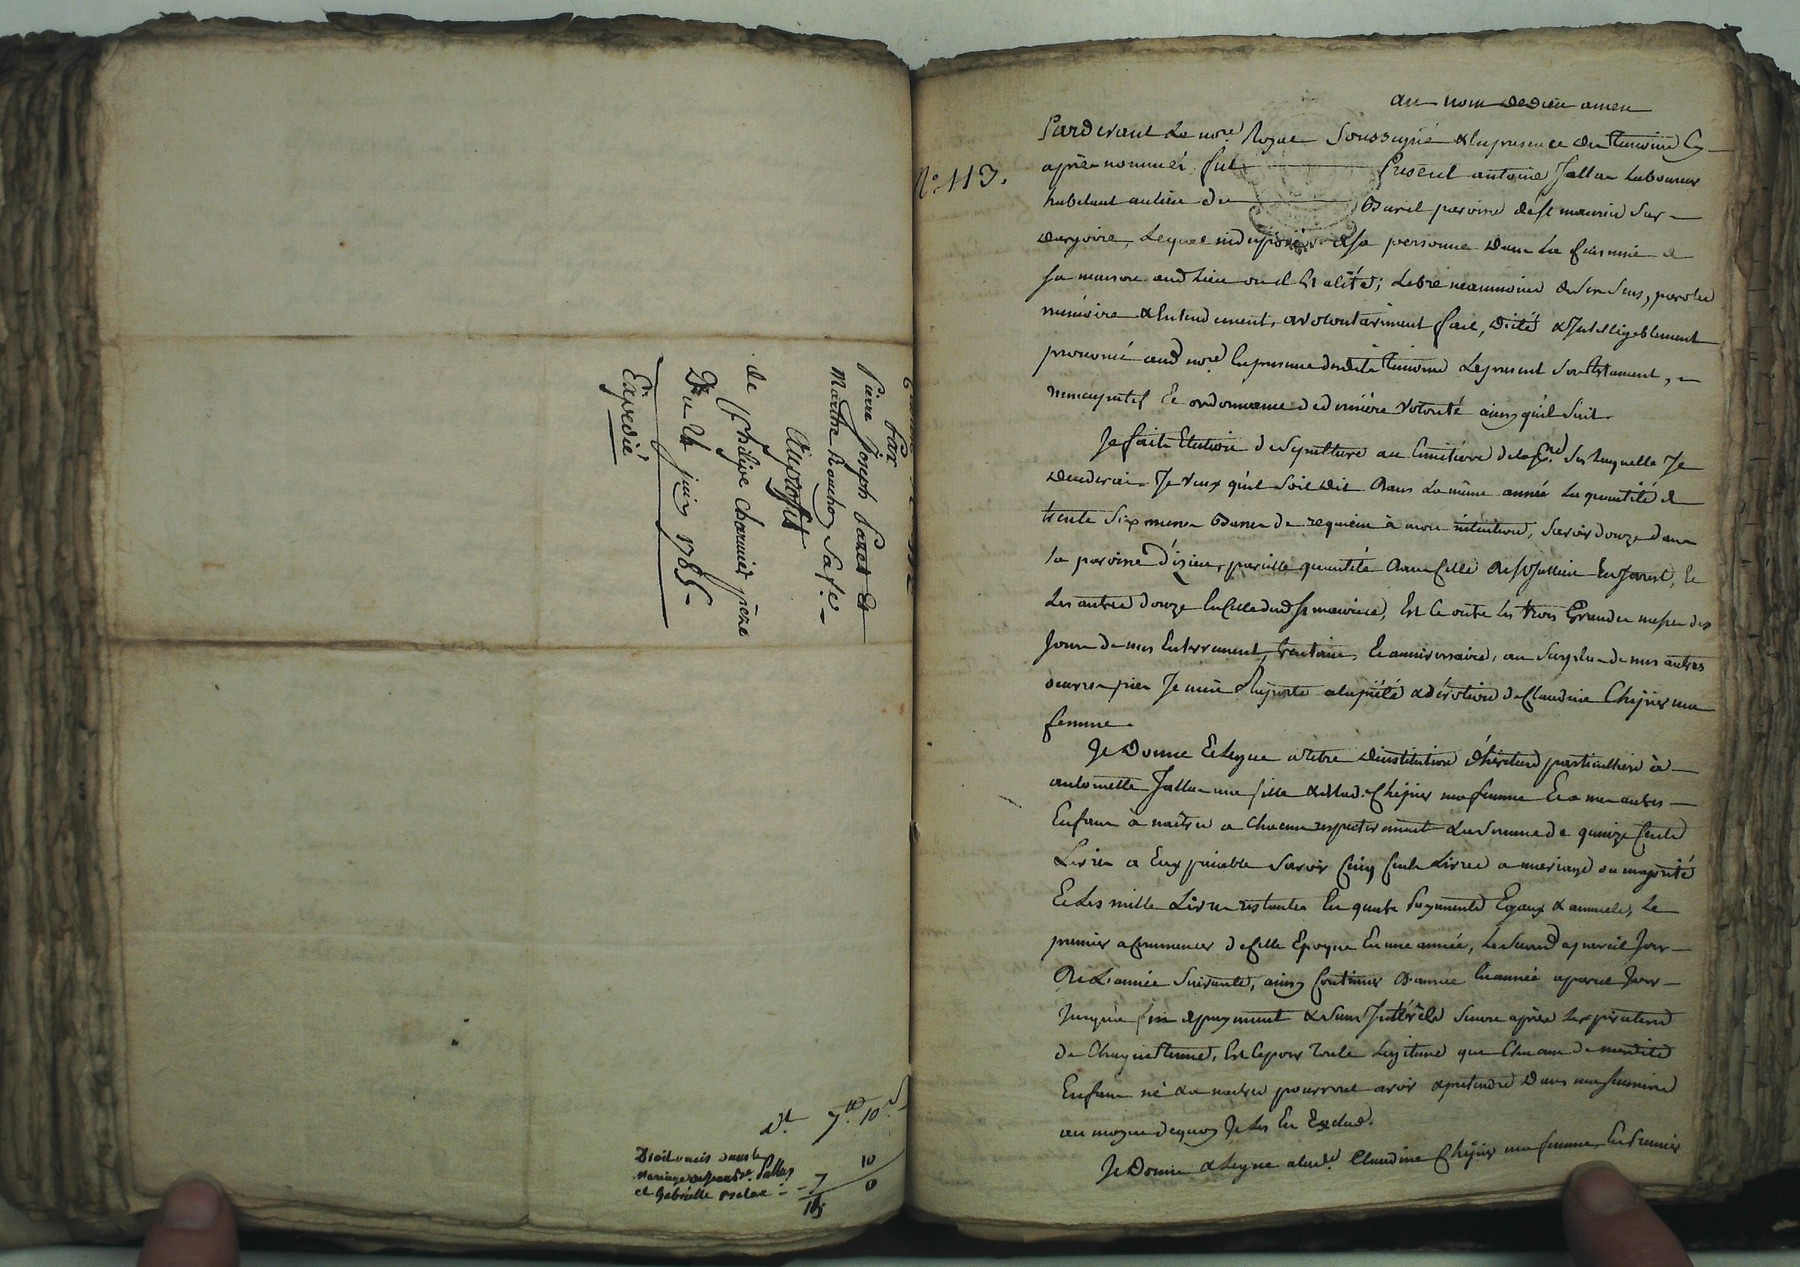 Par
Pierre Joseph Panet &
Marthe Rouchon Sa fe.
Auproffit
de Philipe charmier père
Du 4 juin 1785
Expedié
dt. 7tt 10s
Droit omis dans le
mariage de Jean Bte. Jallas
et Gabrielle
10
7 0
N.º 113.
au nom de dieu amen
Pardevant Le nore. Royal Soussigné & En presence des temoins Cy
après nommés. fut Present antoine Jallas Laboureur
habitant au lieu de Burel paroisse de St maurice Sur
dargoire, Lequel indisposé de Sa personne dans La Cuisine de
Sa maison aud Lieu ou il Est alité; Libre neanmoins de Ses Sens, parolle
mémoire & Entendement, a volontairement fait, dicté & Intelligeblement
prononcé aud nore. En presence desdits temoins Le present Son testament,
nuncupatif Et ordonnance de dernière volonté ainsy qu'il Suit.
Je fais Election de Sepulture au Cimetière de la pse. Sur Laquelle Je
decederai. Je veux qu'il Soit dit dans La même année La quantité de
trente Six messes Basses de requiem à mon intention, Savoir douze dans
la paroisse d'izieu, pareille quantité dans Celle de St Jullien En Jarest, Et
Les autres douze En Celle dud St maurice, Et Ce outre Les trois Grandes messes des
Jours de mes Enterrement, trentaine, Et anniversaire, au Surplus de mes autres
oeuvres pies Je m'en Raporte à la piété & dévotion de Claudine Chipier ma
femme.
Je Donne Et Legue a titre d'institution d'héréditaire particullière à
antoinette Jallas ma fille & de lad. Chipier ma femme Et a mes autres
Enfans a naitre a Chacun respectivement La Somme de quinze Cents
Livres a Eux paiable Savoir Cinq Cents Livres a mariage ou majorité
Et Les mille Livres restantes En quatre Payments Egaux & annuels, Le
premier a Commencer de Celle Epoque En une année, Le Second a pareil Jour
de L'année Suivante, ainsy Continuer d'année En année a pareil Jour
Jusqu'à fin de payment & Sans Intérêts Sinon après L'expiration
de Chaque terme, Et Ce pour toute Legitime que Chacun de mesdits
Enfans né & a naitre pourront avoir & pretendre dans ma Succession
au moyen de quoy Je Les En Exclud.
Je Donne & Legue a lade. Claudine Chipier ma femme, En Premier